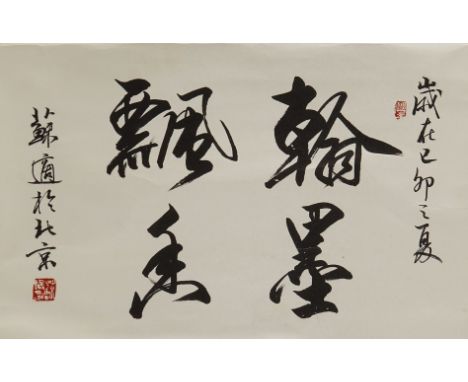 歲在己卯之夏
翰墨
飄香
蘇適於北京